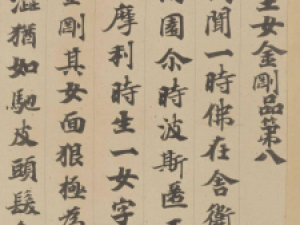 王女金剛品第八
聞一時佛在舍衛
園尒時波斯匿王
摩利時生一女字
金剛其女面狠極為
澁猶如馳皮頭髮